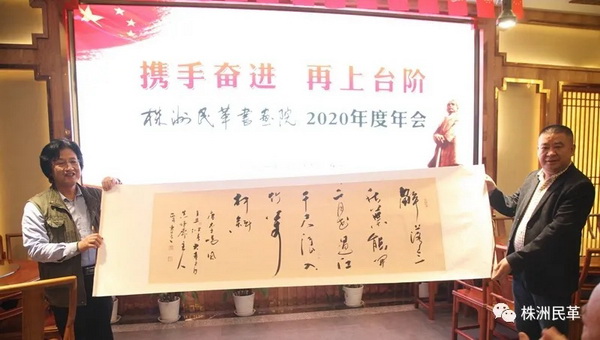 携手奋进 再上台阶
株洲民革書画院 2020年度年会
解落三
秋葉能開
二月花過江
千尺浪入
竹萬
竿斜
株洲民革